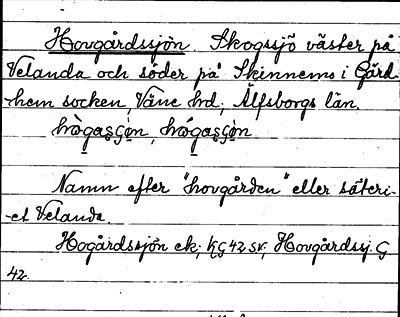 Hovgårdssjön. Skogssjö väster på
Velanda och söder på Skinnemo i Gärd-
hem socken, Väne hd, Älfsborgs län.
Namn efter "hovgården" eller säteri-
et Velanda.
Hogårdssjön ek; KG 42 SV; Hovgårdssj. G
42.